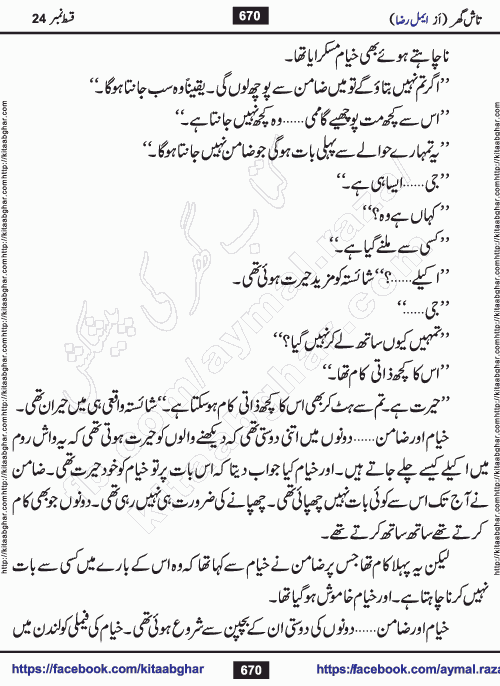 تاش گھر (از ایمل رضا) 670 قسط نمبر 24
نا چاہتے ہوئے بھی خیام مسکرایا تھا۔
’’اگر تم نہیں بتاؤ گے تو میں ضامن سے پوچھ لوں گی۔ یقیناً وہ سب جانتا ہوگا۔‘‘
’’اس سے کچھ مت پوچھیے گا ممی......وہ کچھ نہیں جانتا ہے۔‘‘
’’یہ تمہارے حوالے سے پہلی بات ہوگی جو ضامن نہیں جانتا ہوگا۔‘‘
’’جی......ایسا ہی ہے۔‘‘
’’کہاں ہے وہ؟‘‘
’’کسی سے ملنے گیا ہے۔‘‘
’’اکیلے......؟‘‘ شائستہ کو مزید حیرت ہوئی تھی۔
’’جی......‘‘
’’تمہیں کیوں ساتھ لے کر نہیں گیا؟‘‘
’’اس کا کچھ ذاتی کام تھا۔‘‘
’’حیرت ہے۔ تم سے ہٹ کر بھی اس کا کچھ ذاتی کام ہو سکتا ہے۔‘‘ شائستہ واقعی ہی میں حیران تھی۔
خیام اور ضامن......دونوں میں اتنی دوستی تھی کہ دیکھنے والوں کو حیرت ہوتی تھی کہ یہ واش روم
میں اکیلے کیسے چلے جاتے ہیں۔ اور خیام کیا جواب دیتا کہ اس بات پر تو خیام کو خود حیرت تھی۔ ضامن
نے آج تک اس سے کوئی بات نہیں چھپائی تھی۔ چھپانے کی ضرورت ہی نہیں رہی تھی۔ دونوں جو بھی کام
کرتے تھے ساتھ ساتھ کرتے تھے۔
لیکن یہ پہلا کام تھا جس پر ضامن نے خیام سے کہا تھا کہ وہ اس کے بارے میں کسی سے بات
نہیں کرنا چاہتا ہے۔ اور خیام خاموش ہو گیا تھا۔
خیام اور ضامن......دونوں کی دوستی ان کے بچپن سے شروع ہوئی تھی۔ خیام کی فیملی کو لندن میں
https://facebook.com/kitaabghar 670 https://facebook.com/aymal.raza
کتاب گھر کی پیشکش
fb.com/aymal.raza/
kitaabghar.com
http://kitaabghar.com
http://kitaabghar.com